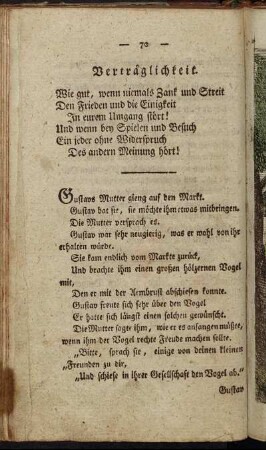 — 70 —
Verträglichkeit.
Wie gut, wenn niemals Zank und Streit
Den Frieden und die Einigkeit
In eurem Umgang stört!
Und wenn bey Spielen und Besuch
Ein jeder ohne Widerspruch
Des andern Meinung hört!
Gustavs Mutter gieng auf den Markt.
Gustav bat sie, sie möchte ihm etwas mitbringen.
Die Mutter versprach es.
Gustav war sehr neugierig, was er wohl von ihr
erhalten würde.
Sie kam endlich vom Markte zurück,
Und brachte ihm einen großen hölzernen Vogel
mit,
Den er mit der Armbrust abschiesen konnte.
Gustav freute sich sehr über den Vogel
Er hatte sich längst einen solchen gewünscht.
Die Mutter sagte ihm, wie er es anfangen müßte,
wenn ihm der Vogel rechte Freude machen sollte.
„Bitte, sprach sie, einige von deinen kleinen
„Freunden zu dir,
„Und schiese in ihrer Gesellschaft den Vogel ab.“
Gustav